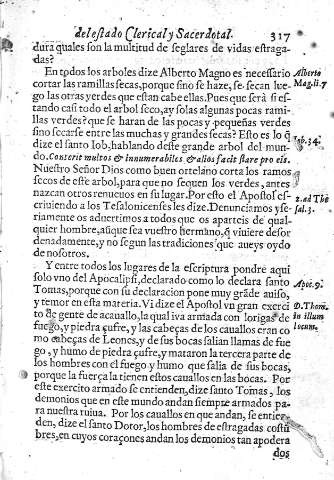 del estado Clerical y Sacerdotal. 317
dura quales son la multitud de seglares de vidas estraga-
das?
En todos los arboles dize Alberto Magno es necessario
cortar las ramillas secas, porque sino se haze, se secan lue-
go las otras verdes que estan cabe ellas. Pues que será si es-
tando casi todo el arbol seco, ay solas algunas pocas rami-
llas verdes? que se haran de las pocas y pequeñas verdes
sino secarse entre las muchas y grandes secas? Esto es lo q̃
dize el santo Iob, hablando deste grande arbol del mun-
do. Conteret multos & innumerabiles & alios facit stare pro eis.
Nuestro Señor Dios como buen ortelano corta los ramos
secos de este arbol, para que no sequen los verdes, antes
nazcan otros renueuos en su lugar. Por esto el Apostol es-
criuiendo a los Tesalonicenses les dize. Denunciamos y se-
riamente os aduertimos a todos que os aparteis de qual-
quier hombre, aũque sea vuestro hermano, q̃ viuiere desor
denadamente, y nó segun las tradiciones que aueys oydo
de nosotros.
Y entre todos los lugares de la escriptura pondre aqui
solo vno del Apocalipsi, declarado como lo declara santo
Tomas, porque con su declaracion pone muy grãde auiso,
y temor en esta materia. Vi dize el Apostol vn gran exerci
to de gente de acauallo, la qual iva armada con lorigas de
fuego, y piedra çufre, y las cabeças de los cauallos eran co
mo cabeças de Leones, y de sus bocas salian llamas de fue
go, y humo de piedra çufre, y mataron la tercera parte de
los hombres con el fuego y humo que salia de sus bocas,
porque la fuerça la tienen estos cauallos en las bocas. Por
este exercito armado se entienden, dize santo Tomas, los
demonios que en este mundo andan siempre armados pa-
ra nuestra ruina. Por los cauallos en que andan, se entien-
den, dize el santo Dotor, los hombres de estragadas costũ
bres, en cuyos coraçones andan los demonios tan apodera
dos
Alberto
Mag. li. 7
Iob. 34.
2. ad The
sal. 3.
Apoc. 9.
D. Thom.
in illum
locum.